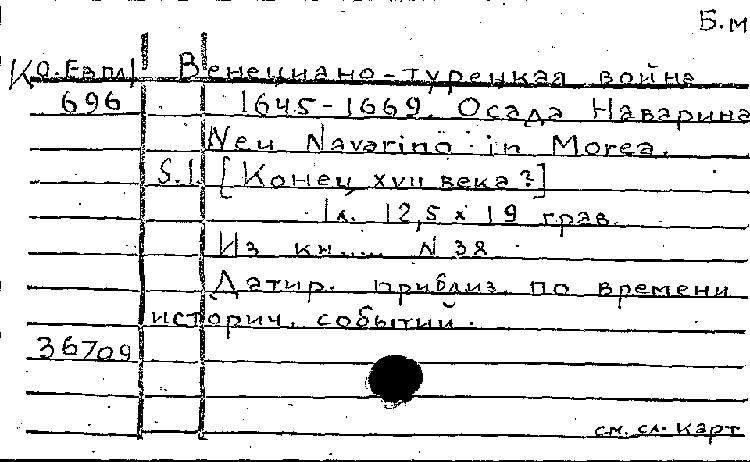 Б.м
К0.Eвпл Венециано-турецкая война
696 1645-1669. Осада Наварина
Neu Navarino in Morea.
S.l. [Конец XVII века?]
1л. 12,5 x 19 грав.
Из кн..... N 38
Датир. приблиз. по времени
историч. событий.
36709
см. сл. карт